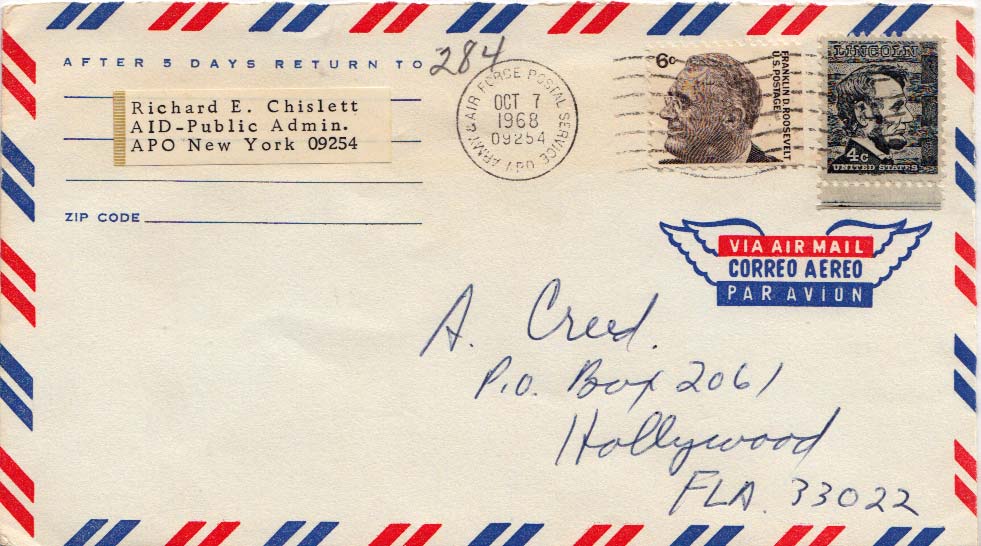 AFTER 5 DAYS RETURN TO
284
Richard E. Chislett
AID-Public Admin.
APO New York 09254
ZIP CODE
ARMY & AIR FORCE POSTAL SERVICE
APO
OCT 7
1968
09254
6c
FRANKLIN D. ROOSEVELT
U.S. POSTAGE
LINCOLN
4c
UNITED STATES
VIA AIR MAIL
CORREO AEREO
PAR AVION
A. Creed.
P.O. Box 2061
Hollywood
FLA. 33022